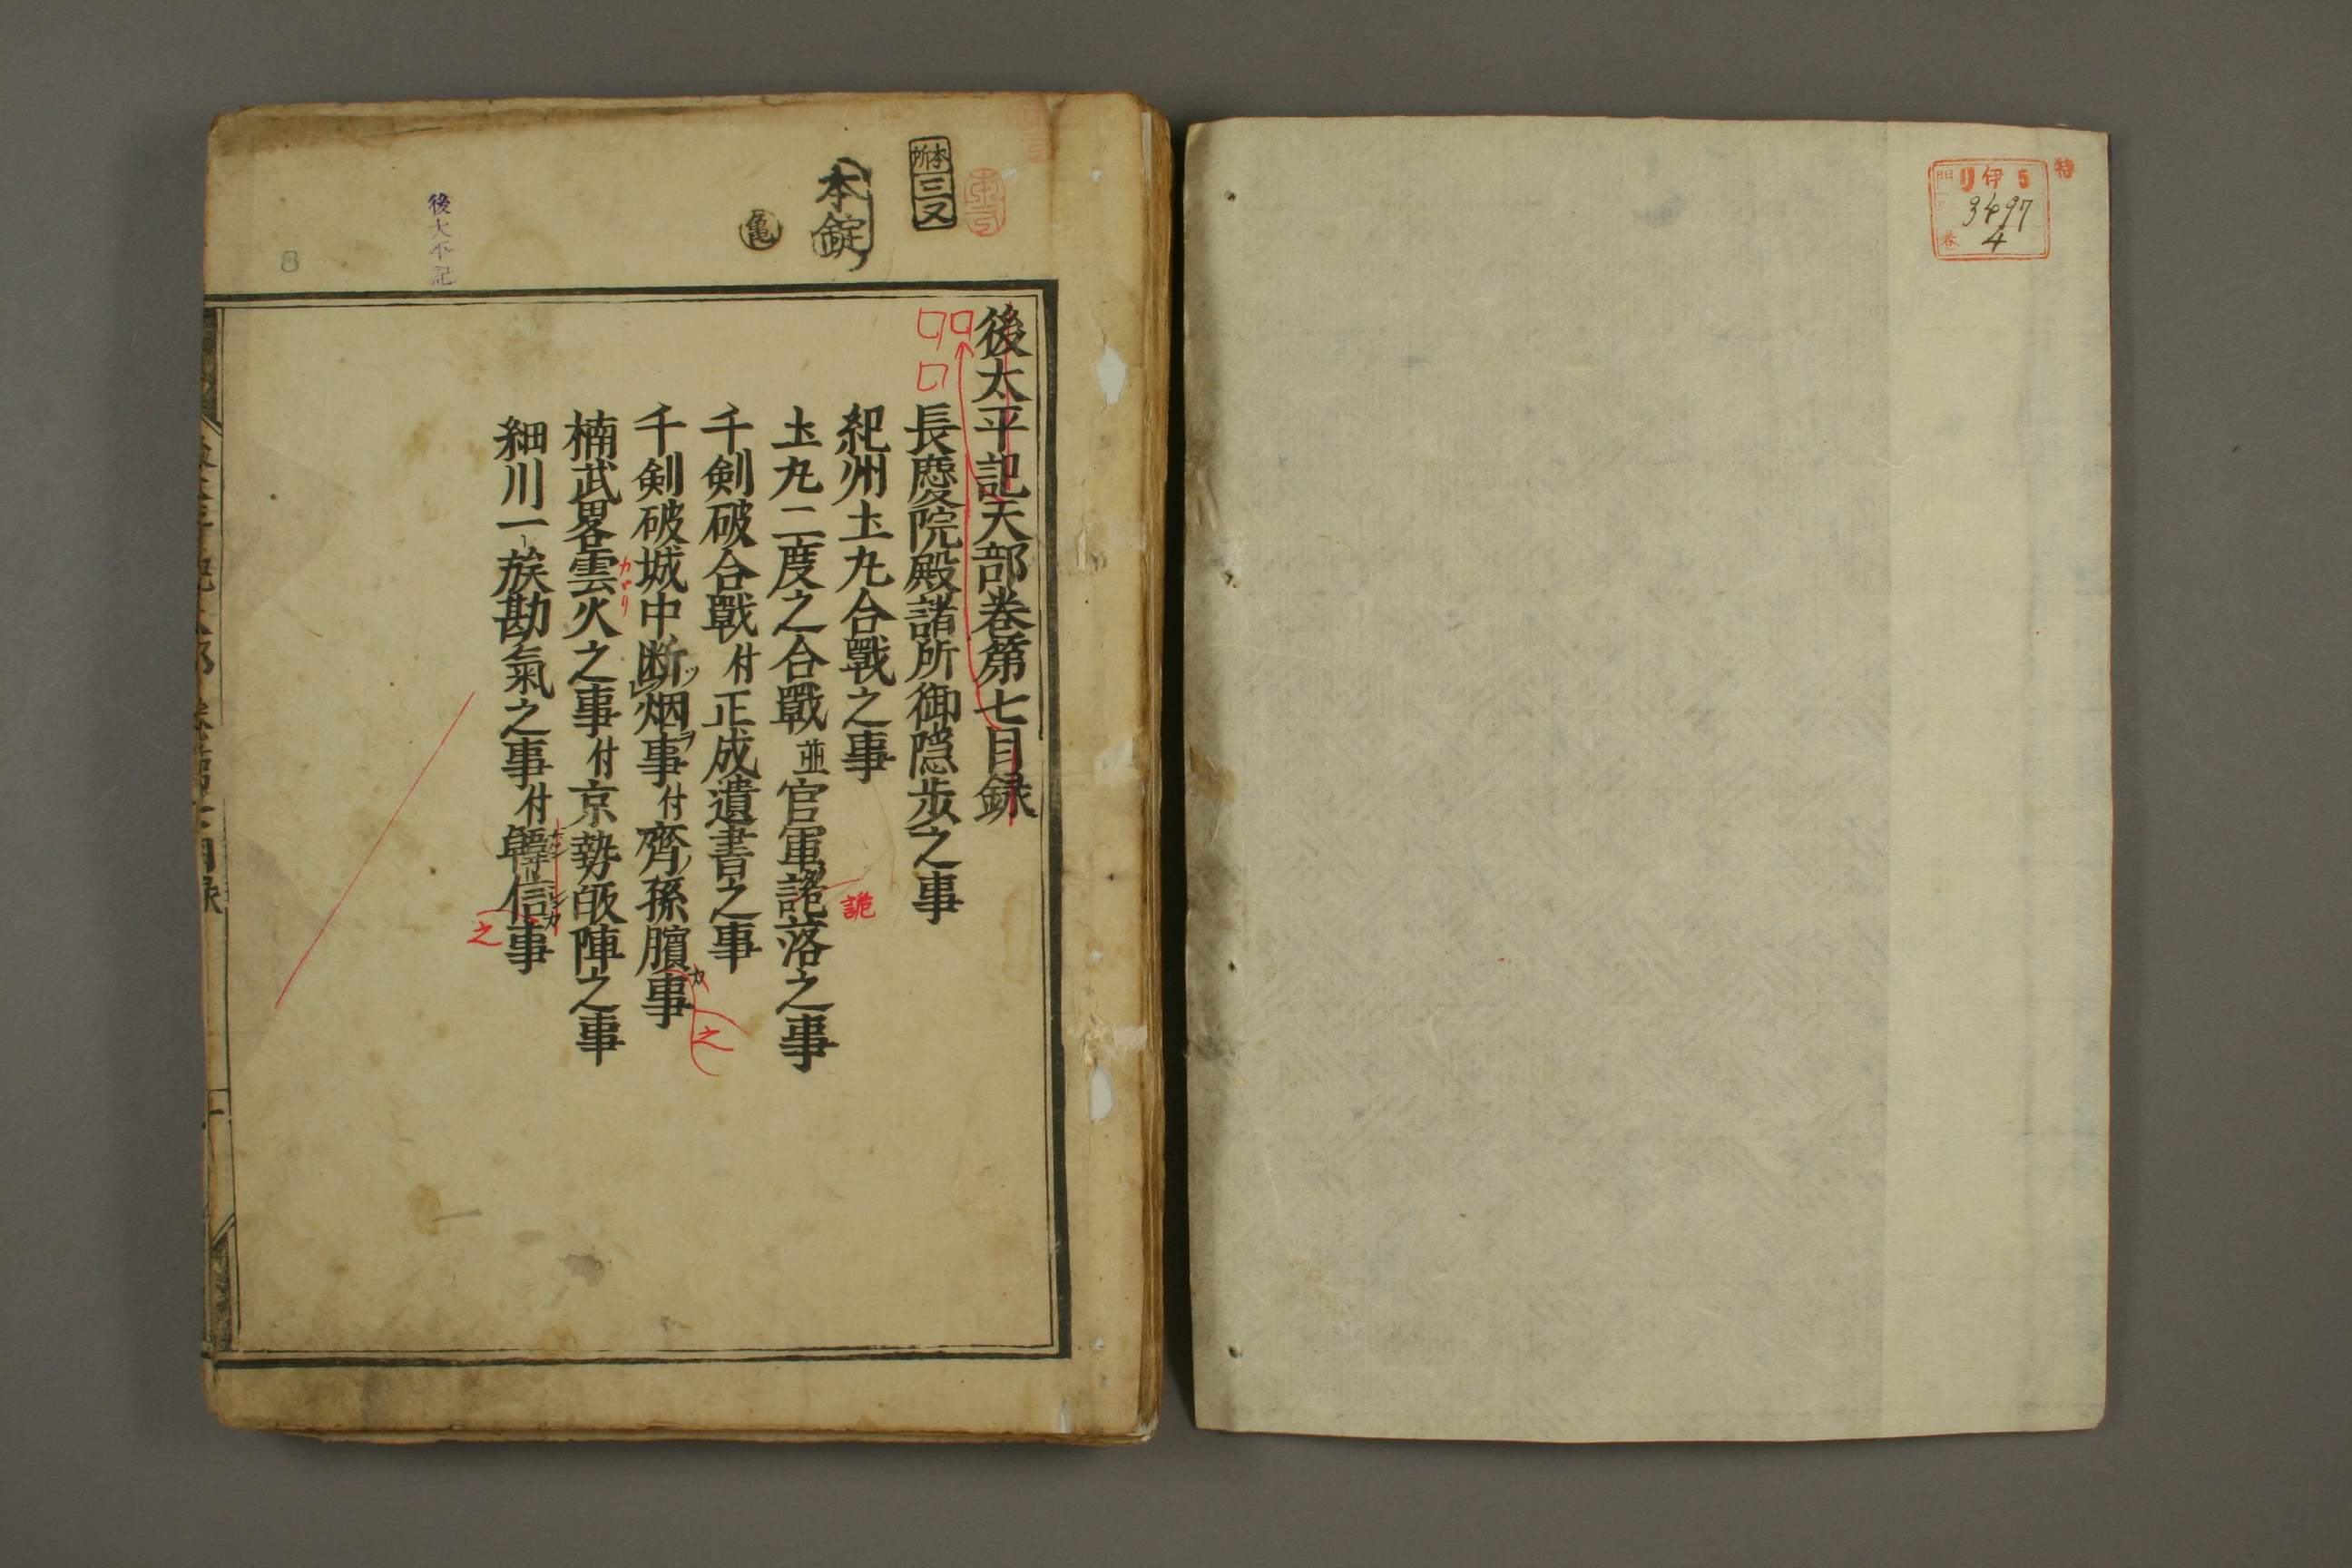 特
門 リ伊5
号 3497
巻 4
本所
三又
本錠
亀
後太平記
8
後太平記天部巻第七目録
長慶院殿諸所御隠歩之事
紀州圡丸合戰之事
圡丸二度之合戰並官軍詭落之事
詭
千剣破合戰付正成遺書之事
千剣破城中断烟事付齊孫臏事
之
楠武畧雲火之事付京勢皈陣之事
カヾリ
細川一族勘氣之事付韓信事
之